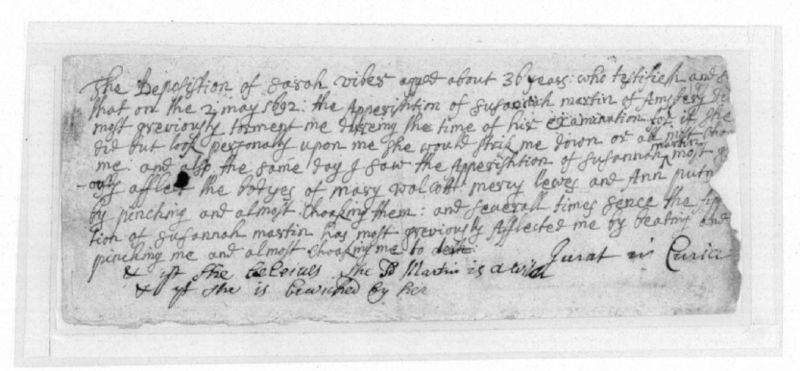 The Deposistion of Sarah viber agged about 36 years: who testifieth and s
that on the 2 may 1692: the Apperishtion of Susannah martin of Amsbery did
most greviously torment me dureing the time of hir examination for if she
did but look personaly upon me she would strik me down or allmost choak
me and also the same day I saw the Apperishtion of Susannah martin most g
-ously afflect the bodyes of mary walcott mercy lewes and Ann putn
by pinching and almost choaking them: and severall times sence the App
tion of Susannah martin has most greviously afflected me by beating and
pinching me and almost choaking me to death
& yt she beleives she sd Martin is a wich Jurat in Curia
& yt she is bewiched by her